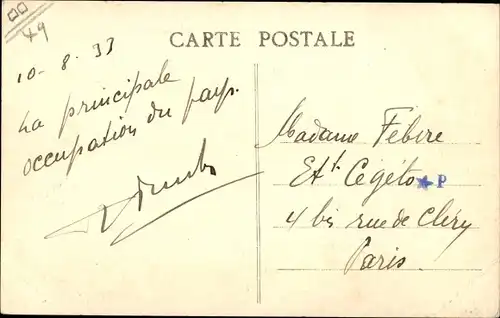 49
CARTE POSTALE
10-8.33
La principale
occupation du pays.
Madame Febvre
Ets Cégéto
P
4 bis rue de Cléry
Paris.